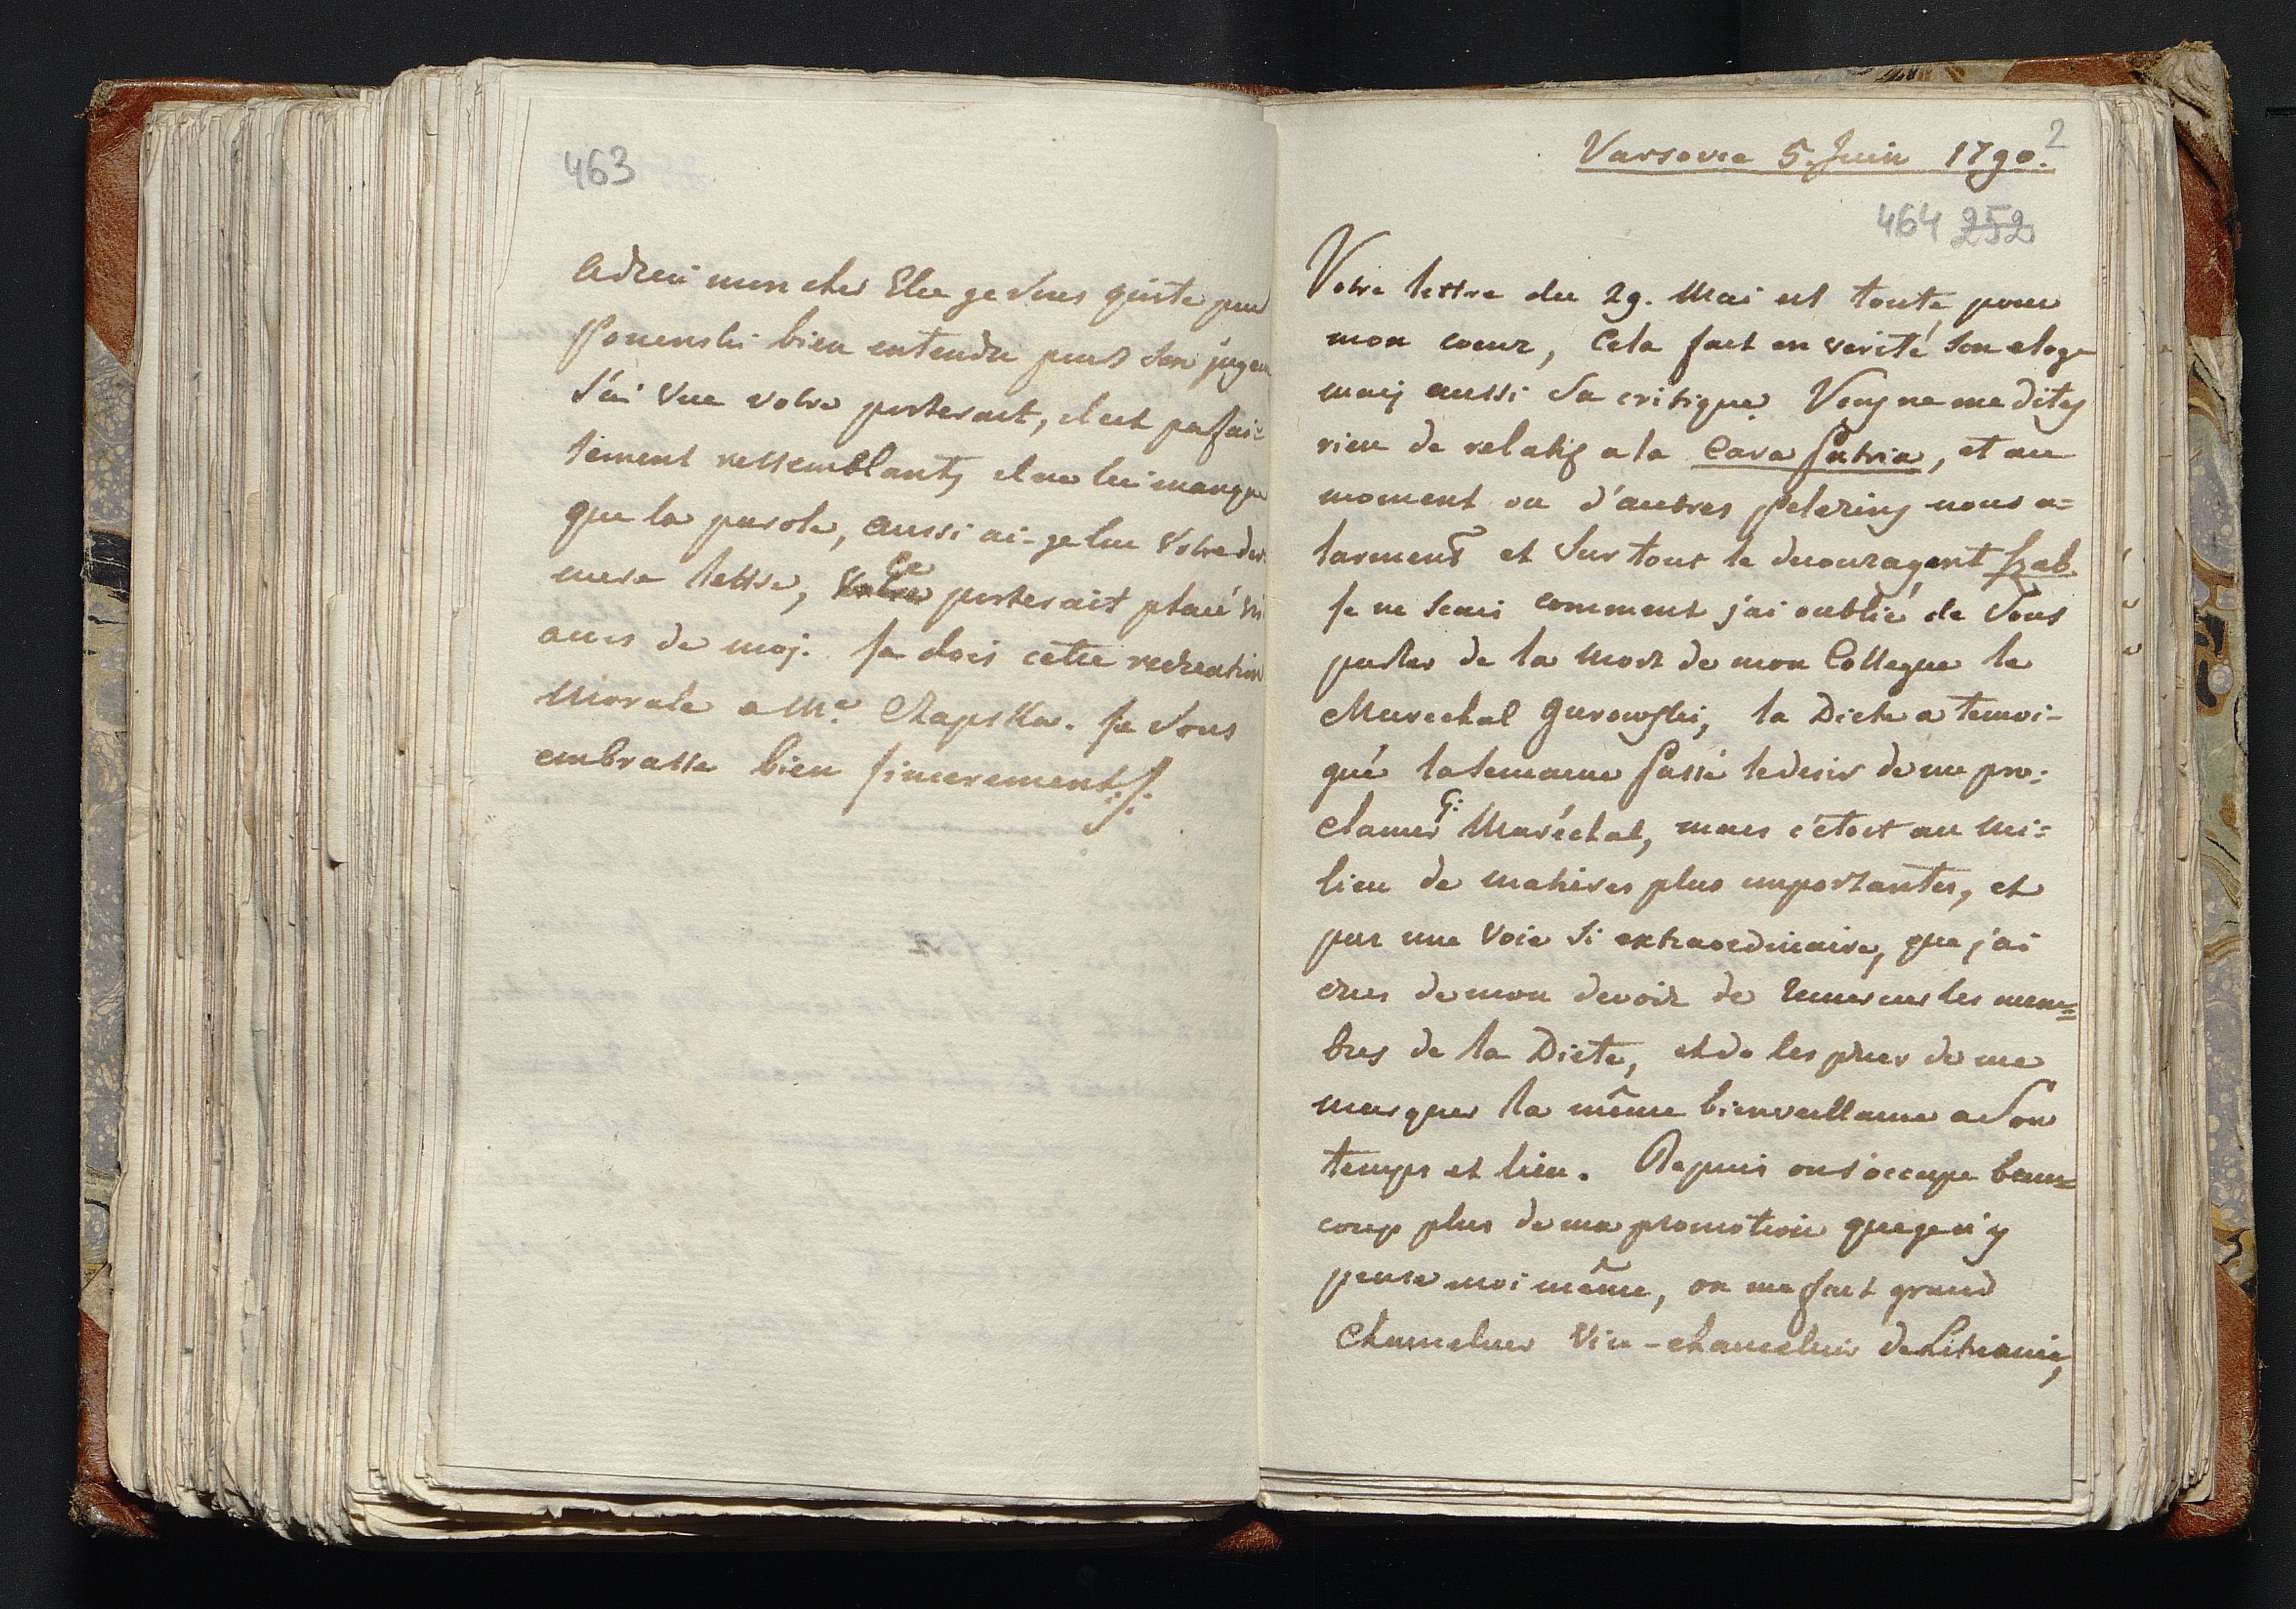 463
Adieu mon cher Elie je vous quite pour
Poninski bien entendu pour son jugem
J'ai vue votre porterait, il est parfai=
tement ressemblant, il ne lui manque
que la parole, aussi ai-je lue votre der
niere lettre, ce porterait placé vis
avis de moj. Je dois cette recreation
morale a Me. Czapska. Je vous
embrasse bien sincerement./.
Varsovie 5. Juin 1790.
2
464 252
Votre lettre du 29. Mai est toute pour
mon coeur, Cela fait en verité son eloge
mais aussi sa critique. Vous ne me dites
rien de relatif a la Cara Patria, et au
moment ou d'autres pelerins nous a=
larment et sur tout le decouragent
Je ne scais comment j'ai oublié de vous
parler de la mort de mon Collegue le
Marechal Gurowski, la Diete a temoi-
gné la semaine passé le desir de me pro=
clamer G: Maréchal, mais c'etoit au mi=
lieu de matieres plus importantes, et
par une voie si extraordinaire, que j'ai
crus de mon devoir de remercier les mem=
bres de la Diete, et de les prier de me
marquer la même bienveillance a son
temps et lieu. Depuis on s'occupe beau=
coup plus de ma promotion que je n'y
pense moi même, on me fait grand
Chancelier Vice-chancelier de Lituanie,